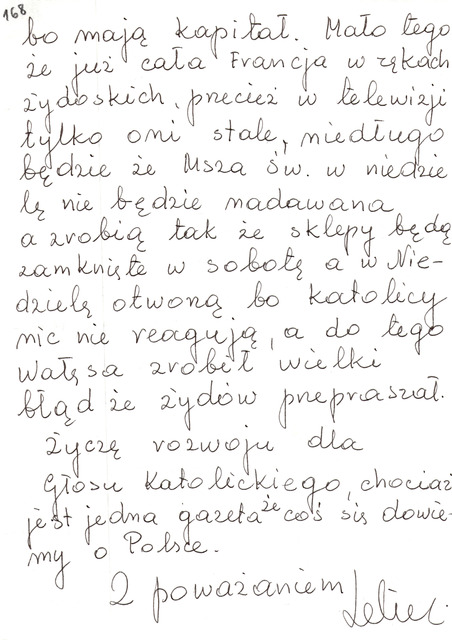 168
bo mają kapitał. Mało tego
że już cała Francja w rękach
żydoskich, precież w telewizji
tylko oni stale, niedługo
będzie że Msza św. w niedzie
lę nie będzie nadawana
a zrobią tak że sklepy będą
zamknięte w sobotę a w Nie-
dzielę otworzą bo Katolicy
nic nie reagują, a do tego
Wałęsa zrobił wielki
błąd że żydów prepraszał.
Życzę rozwoju dla
Głosu Katolickiego, chociaż
jest jedna gazeta że coś się dowie-
my o Polsce.
Z poważaniem